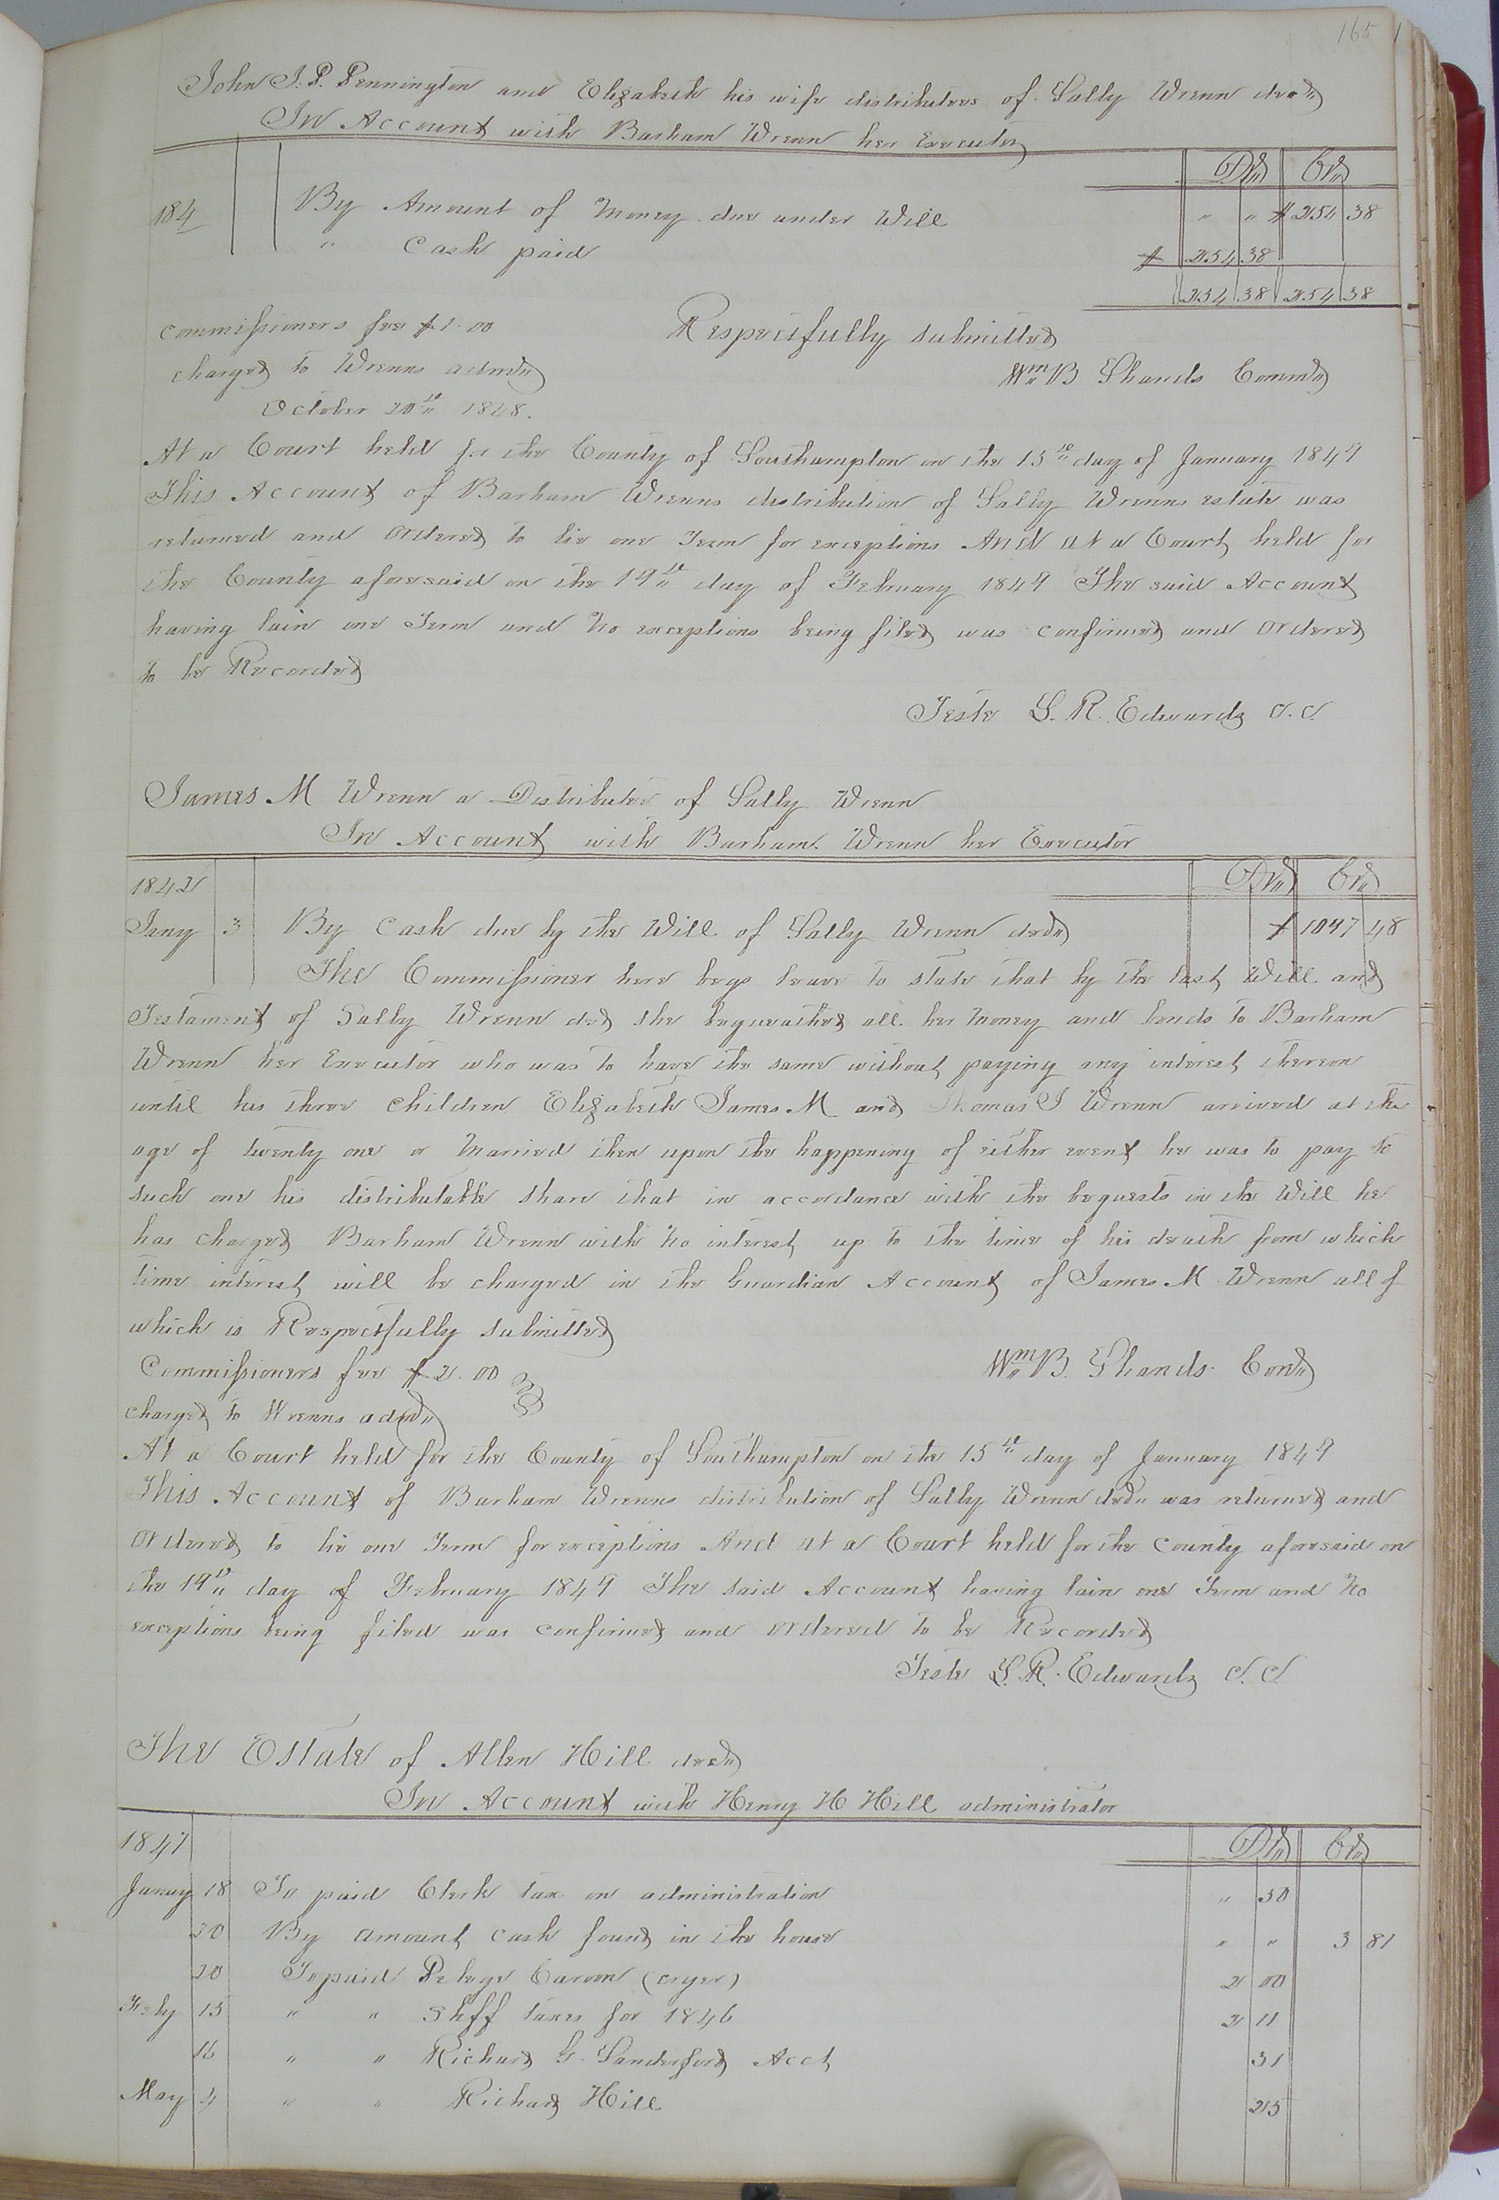 165
John J. P. Pennington and Elizabeth his wife distributees of Sally Wrenn decd
In Account with Barham Wrenn her Executor
Dr Cr
184 By Amount of Money due under Will " " $ 254 38
" Cash paid $ 254 38
254 38 254 38
Commissioners fee $1.00 Respectfully submitted
charged to Wrenns admr Wm B Shands Commr
October 20th 1848.
At a Court held for the County of Southampton on the 15th day of January 1849
This Account of Barham Wrenns distribution of Sally Wrenns estate was
returned and Ordered to lie one Term for exceptions And at a Court held for
the County aforesaid on the 19th day of February 1849 The said Account
having lain one Term and No exceptions being filed was confirmed and Ordered
to be Recorded
Teste L. R. Edwards C.C.
James M Wrenn a Distributee of Sally Wrenn
In Account with Barham Wrenn her Executor
1842 Dr Cr
Jany 3 By Cash due by the Will of Sally Wrenn decd $ 1047 48
The Commissioner here begs leave to state that by the last Will and
Testament of Sally Wrenn decd she bequeathed all her Money and bonds to Barham
Wrenn her Executor who was to have the same without paying any interest thereon
until his three Children Elizabeth James M and Thomas J Wrenn arrived at the
age of twenty one or Married then upon the happening of either event he was to pay to
such one his distributable share that in accordance with the bequests in the Will he
has charged Barham Wrenn with No interest up to the time of his death from which
time interest will be charged in the Guardian Account of James M Wrenn all of
which is Respectfully submitted
Commissioners fee $2.00 Wm B. Shands Comr
charged to Wrenns admr
At a Court held for the County of Southampton on the 15th day of January 1849
This Account of Barham Wrenns distribution of Sally Wrenn decd was returned and
Ordered to lie one Term for exceptions And at a Court held for the County aforesaid on
the 19th day of February 1849 The said Account having lain one Term and No
exceptions being filed was confirmed and Ordered to be Recorded
Teste L. R. Edwards C.C.
The Estate of Allen Hill decd
In Account with Henry H Hill administrator
1847 Dr Cr
January 18 To paid Clerk tax on administration " 50
20 By amount cash found in the house " " 3 81
20 To paid (cryer) 2 00
Feby 15 " " Shff taxes for 1846 2 11
16 " " Richard G. Sanderford Acct 31
May 4 " " Richard Hill 25